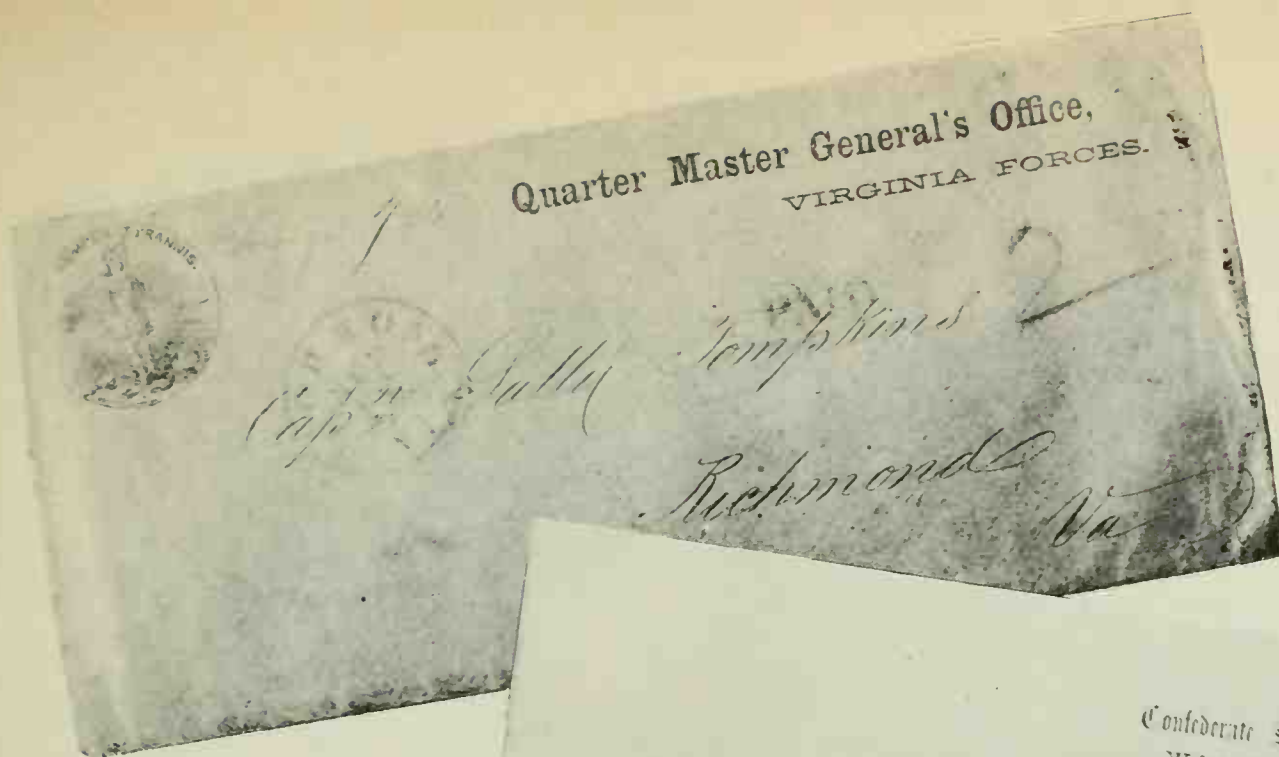 Quarter Master General's Office,
VIRGINIA FORCES.
TYRANNIS.
2
Capn Sally Tompkins
Richmond
Va
Confederate